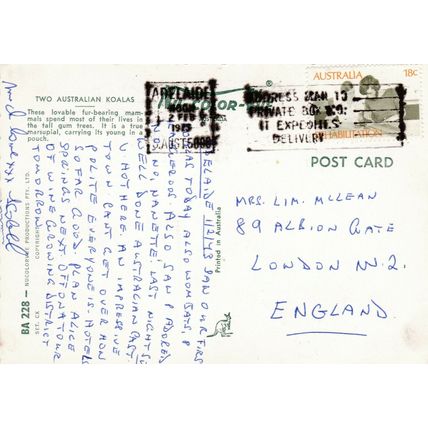 TWO AUSTRALIAN KOALAS
These lovable fur-bearing mam-
mals spend most of their lives in
the tall gum trees. It is a true
marsupial, carrying its young in a
pouch.
ADELAIDE
2 FEB
1973
S.AUST 5000
ADDRESS MAIL TO
PRIVATE BOX NO:
IT EXPEDITES
DELIVERY
AUSTRALIA
18c
REHABILITATION
POST CARD
MRS. LIM. MCLEAN
89 ALBION GATE
LONDON W.2.
ENGLAND.
ADELAIDE 1/2/73 SAW OUR FIRST
TODAY ALSO WOMBATS, &
ALSO SAW & ADORED
NO, NO, NANETTE' LAST NIGHT
WELL DONE AUSTRALIAN CAST.
V HOT HERE. AN IMPRESSIVE
TOWN CAN'T GET OVER HOW
POLITE EVERYONE IS. HOTELS
SO FAR GOOD. PLAN ALICE
SPRINGS NEXT. OFF ON A TOUR
OF WINE GROWING DISTRICT
TOMORROW
Much love xx
Printed in Australia
NUCOLORVUE PRODUCTIONS PTY. LTD.
COPYRIGHT
BA 228